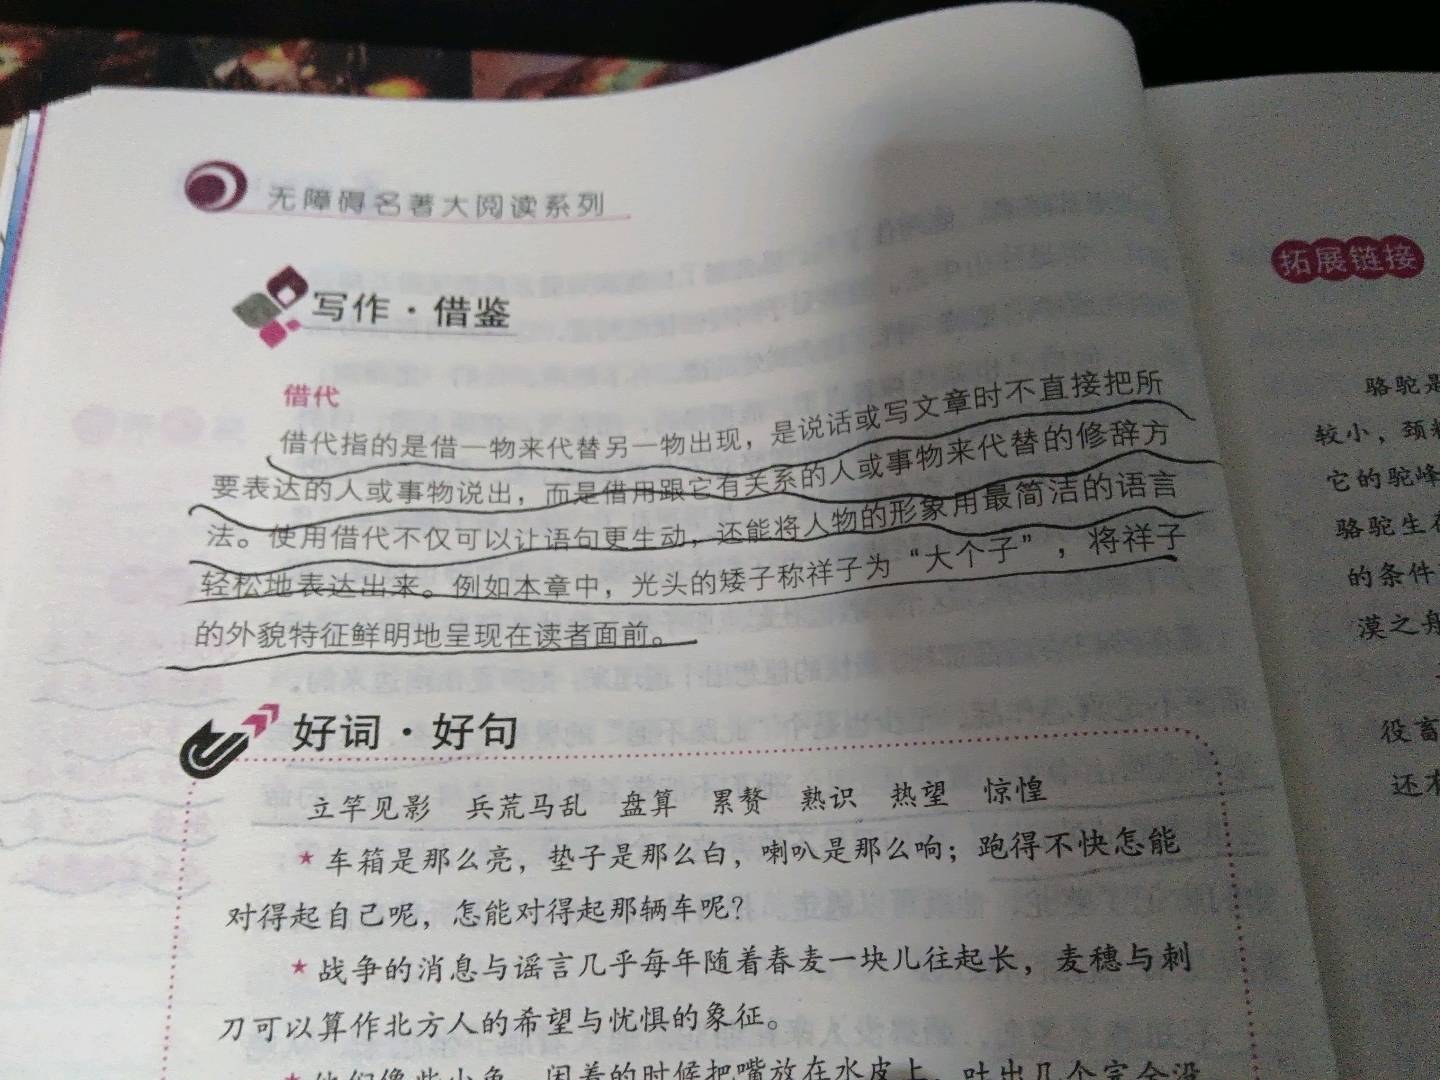 无障碍名著大阅读系列
写作·借鉴
借代
借代指的是借一物来代替另一物出现，是说话或写文章时不直接把所
要表达的人或事物说出，而是借用跟它有关系的人或事物来代替的修辞方
法。使用借代不仅可以让语句更生动，还能将人物的形象用最简洁的语言
轻松地表达出来。例如本章中，光头的矮子称祥子为“大个子”，将祥子
的外貌特征鲜明地呈现在读者面前。
好词·好句
立竿见影 兵荒马乱 盘算 累赘 熟识 热望 惊惶
★车箱是那么亮，垫子是那么白，喇叭是那么响；跑得不快怎能
对得起自己呢，怎能对得起那辆车呢？
★战争的消息与谣言几乎每年随着春麦一块儿往起长，麦穗与刺
刀可以算作北方人的希望与忧惧的象征。
★他们像些小鱼，闲着的时候把嘴放在水皮上，吐出几个完全没
拓展链接
骆驼是
较小，颈
它的驼峰
骆驼生在
的条件
漠之舟
役畜
还